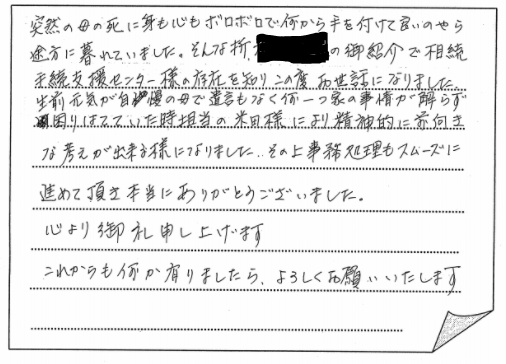 突然の母の死に身も心もボロボロで何から手を付けて良いのやら
途方に暮れていました。そんな折、の御紹介で相続
手続支援センター様の存在を知りこの度お世話になりました
生前元気が自慢の母で遺言もなく何一つ家の事情が解らず
困りはてていた時担当の米田様により精神的に前向き
な考えが出来る様になりました。その上事務処理もスムーズに
進めて頂き本当にありがとうございました。
心より御礼申し上げます
これからも何か有りましたら、よろしくお願いいたします